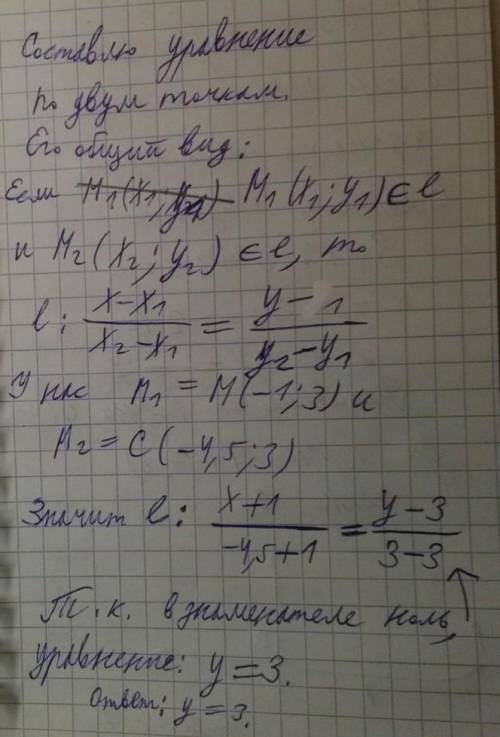 Составлю уравнение
по двум точкам.
Его общий вид:
Если M₁(x₁; y₁) ∈ l
и M₂(x₂; y₂) ∈ l, то
l: (x-x₁)/(x₂-x₁) = (y- 1)/(y₂-y₁)
У нас M₁ = M(-1;3) и
M₂ = C(-4,5;3)
Значит l: (x+1)/(-4,5+1) = (y-3)/(3-3)
Т.к. в знаменателе ноль,
уравнение: y=3.
Ответ: y=3.